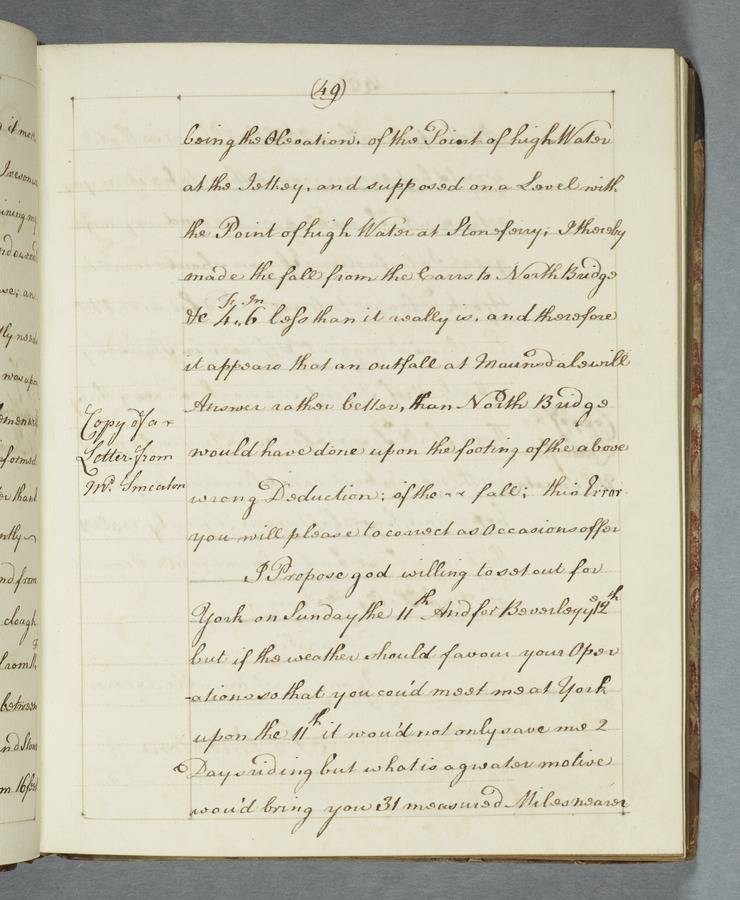 (49)
being the Elevation, of the Point of high Water
at the Jettey, and supposed on a Level with
the Point of high Water at Stoneferry; I thereby
made the fall from the Carrs to North Bridge
Ft, In
&c 4,, 6 less than it really is, and therefore
it appears that an outfall at Maunsdale will
Answer rather better, than North Bridge
would have done upon the footing of the above
wrong Deduction; of the fall; this Error
you will please to correct as Occasions offer
I Propose god willing to set out for
York on Sunday the 11th And for Beverley ye 12th
but if the weather should favour your Oper
-ations so that you cou'd meet me at York
upon the 11th it wou'd not only save me 2
Days riding but what is a greater motive
wou'd bring you 31 measured Miles nearer
Copy of a
Letter from
Mr. Smeaton